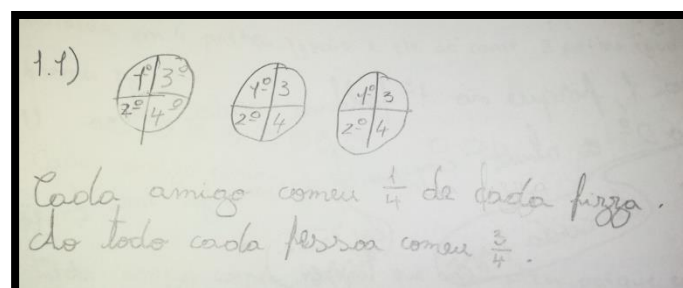 1.1)
1º 3º 1º 3 1º 3
2º 4º 2º 4 2º 4
Cada amigo comeu 1/4 de cada pizza.
Ao todo cada pessoa comeu 3/4.